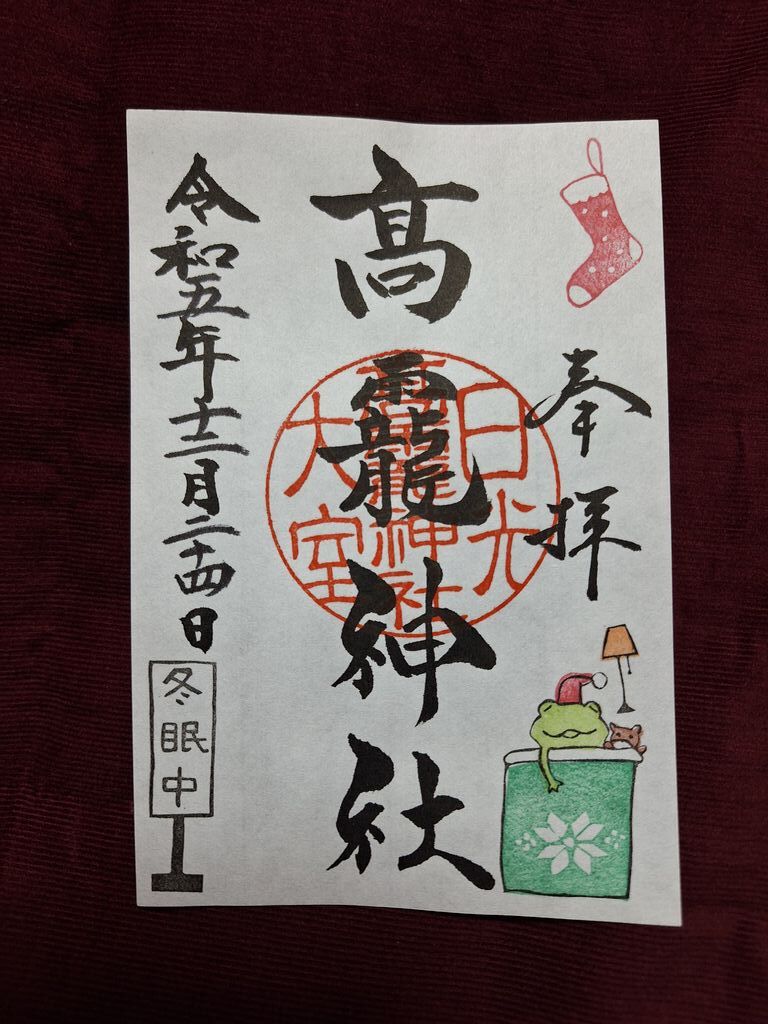 奉拝
高龗神社
日光
高龗神社
大室
令和五年十二月二十四日
冬眠中